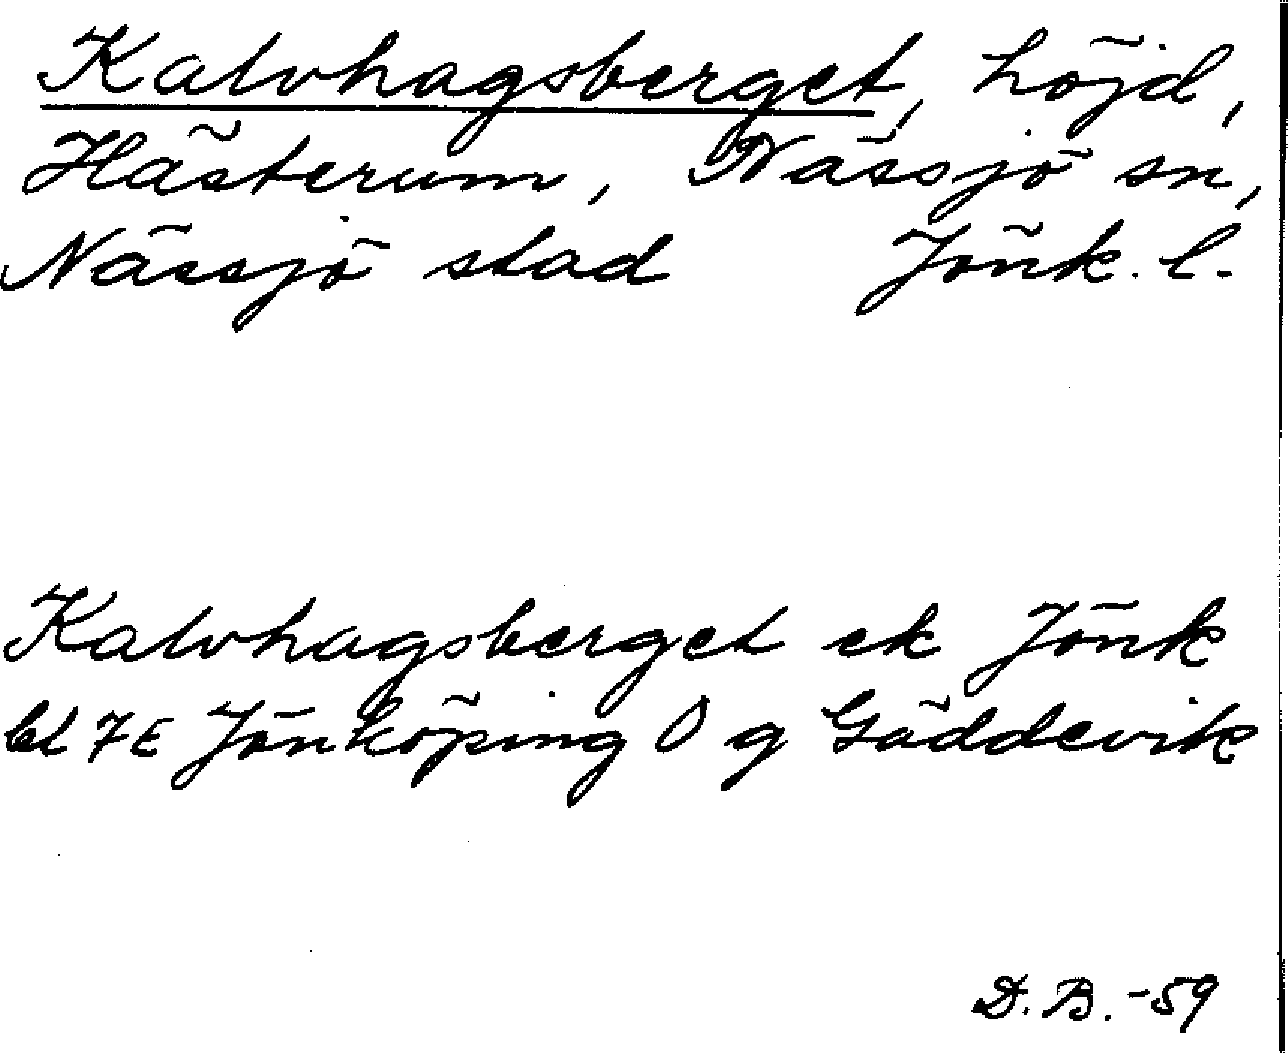 Kalvhagsberget, höjd,
Hästerum, Nässjö sn,
Nässjö stad Jönk. l.
Kalvhagsberget ek Jönk
bl 7E Jönköping O g Gäddevik
D. B. -59